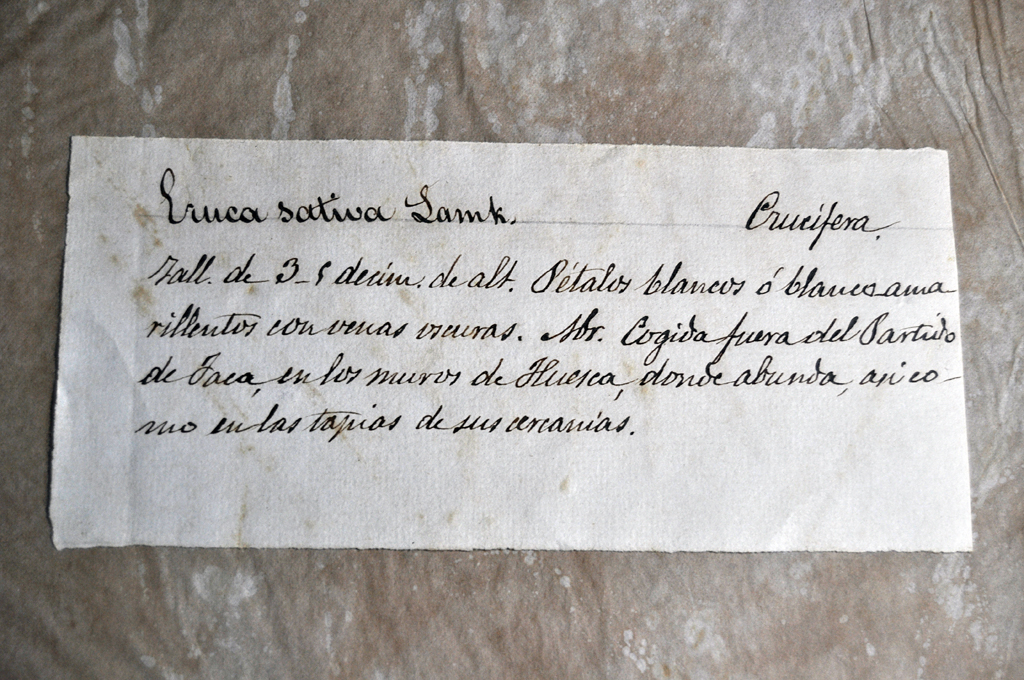 Eruca sativa Lamk. Crucífera.
Tall. de 3-5 decím. de alt. Pétalos blancos ó blanco ama
rillentos con venas oscuras. Abr. Cogida fuera del Partido
de Jaca, en los muros de Huesca, donde abunda, asi co-
mo en las tapias de sus cercanias.